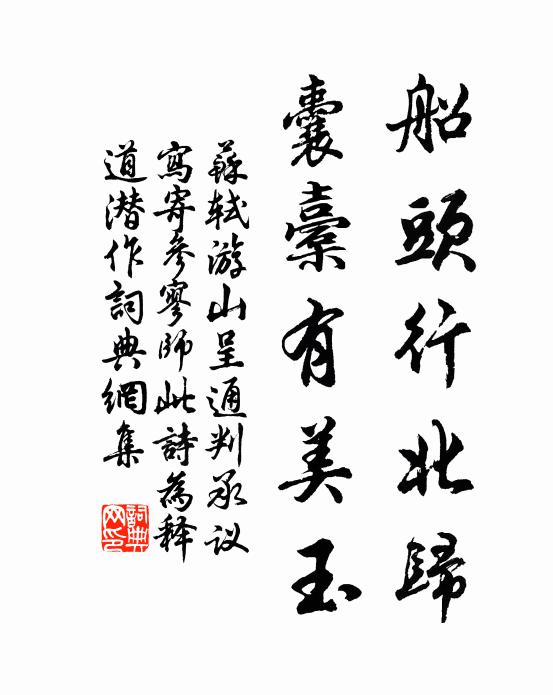 船頭行北歸
囊橐有美玉
蘇軾游山呈通判承议
寫寄參寥師此詩為释
道潜作詞典網集
詞典網印